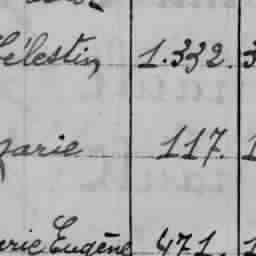 Célestin 1.332.
Marie 117.
Marie Eugène 471.